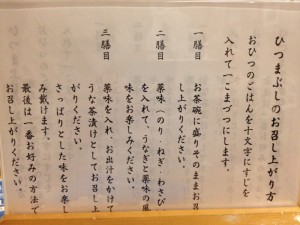 ひつまぶしのお召し上がり方
おひつのごはんを十文字にすじを
入れて一こまづつにします。
一膳目
お茶碗に盛りそのままお召
し上がりください。
二膳目
薬味(のり・ねぎ・わさび)
を入れて、うなぎと薬味の風
味をお楽しみください。
三膳目
薬味を入れ、お出汁をかけて
うな茶漬けとしてお召し上
がりください。
さっぱりとした味をお楽し
み戴けます。
最後は一番お好みの方法で
お召し上がりください。